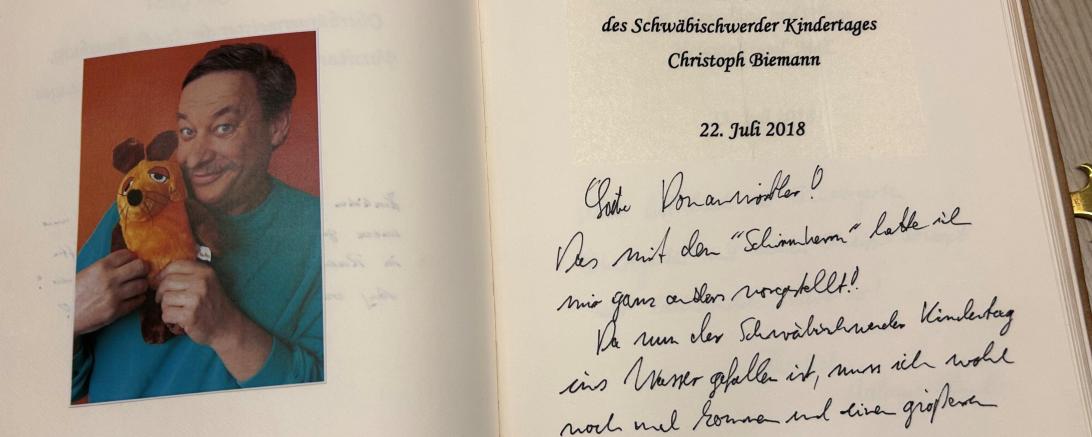 des Schwäbischwerder Kindertages
Christoph Biemann
22. Juli 2018
Liebe Donauwörther!
Das mit dem "Schirmherrn" hatte ich
mir ganz anders vorgestellt!
Da nun der Schwäbischwerder Kindertag
ins Wasser gefallen ist, muss ich wohl
noch mal kommen und einen größeren